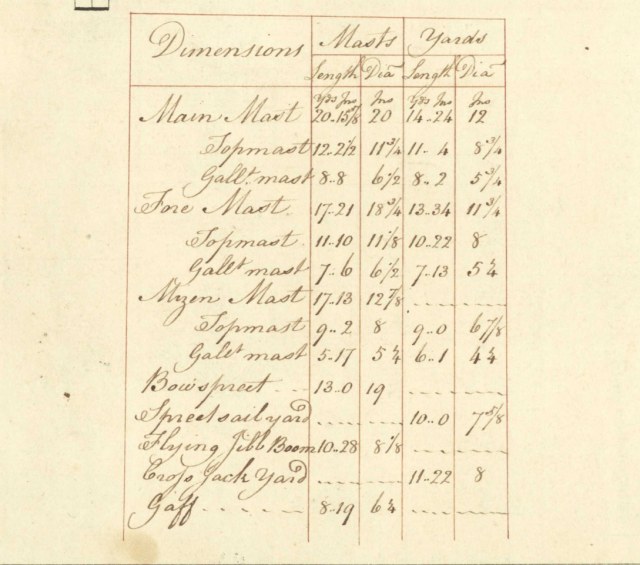 Dimensions Masts Yards
Length Dia Length Dia
Yds Ins Ins Yds Ins Ins
Main Mast 20-15 5/8 20 14-24 12
Topmast 12-21 1/2 11 3/4 11-4 8 3/4
Gallt mast 8-8 6 1/2 8-2 5 3/4
Fore Mast 17-21 18 3/4 13-34 11 3/4
Topmast 11-10 11 1/8 10-22 8
Gallt mast 7-6 6 1/2 7-13 5 1/4
Mizen Mast 17-13 12 7/8
Topmast 9-2 8 9-0 6 7/8
Galt mast 5-17 5 1/4 6-1 4 1/4
Bowspreet 13-0 19
Spreetsail yard 10-0 7 5/8
Flying Jibb Boom 10-28 8 1/8
Cross Jack Yard 11-22 8
Gaff 8-19 6 1/4